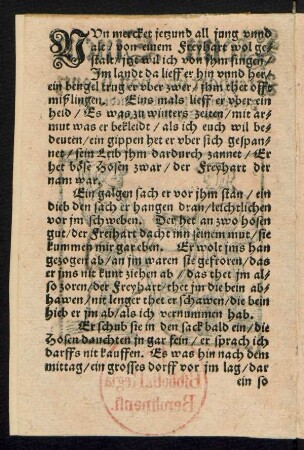 NVn mercket jetzund all jung vnnd
alt / von einem Freyhart wol ge-
stalt / jtzt wil ich von jhm singen /
Im landt da lieff er hin vnnd her /
ein bengel trug er vber zwer / jhm thet offt
mißlingen. Eins mals lieff er vber ein
heid / Es was zu winters zeiten / mit ar-
mut was er bekleidt / als ich euch wil be-
deuten / ein gippen het er vber sich gespan-
net / sein Leib jhm dardurch zannet / Er
het böse Hosen zwar / der Freyhart der
nam war.
Ein galgen sach er vor jhm stån / ein
dieb den sach er hangen dran / leichtlichen
vor jm schweben. Der het an zwo hosen
gut / der Freihart dacht inn seinem mut / sie
kummen mir gar eben. Er wolt jms han
gezogen ab / an jm waren sie gefroren / das
er jms nit kunt ziehen ab / das thet jm al-
so zoren / der Freyhart thet jm die bein ab-
hawen / nit lenger thet er schawen / die bein
hieb er jm ab / als ich vernummen hab.
Er schub sie in den sack bald ein / die
Hosen dauchten jn gar fein / er sprach ich
darffs nit kauffen. Es was hin nach dem
mittag / ein grosses dorff vor jm lag / dar
ein so